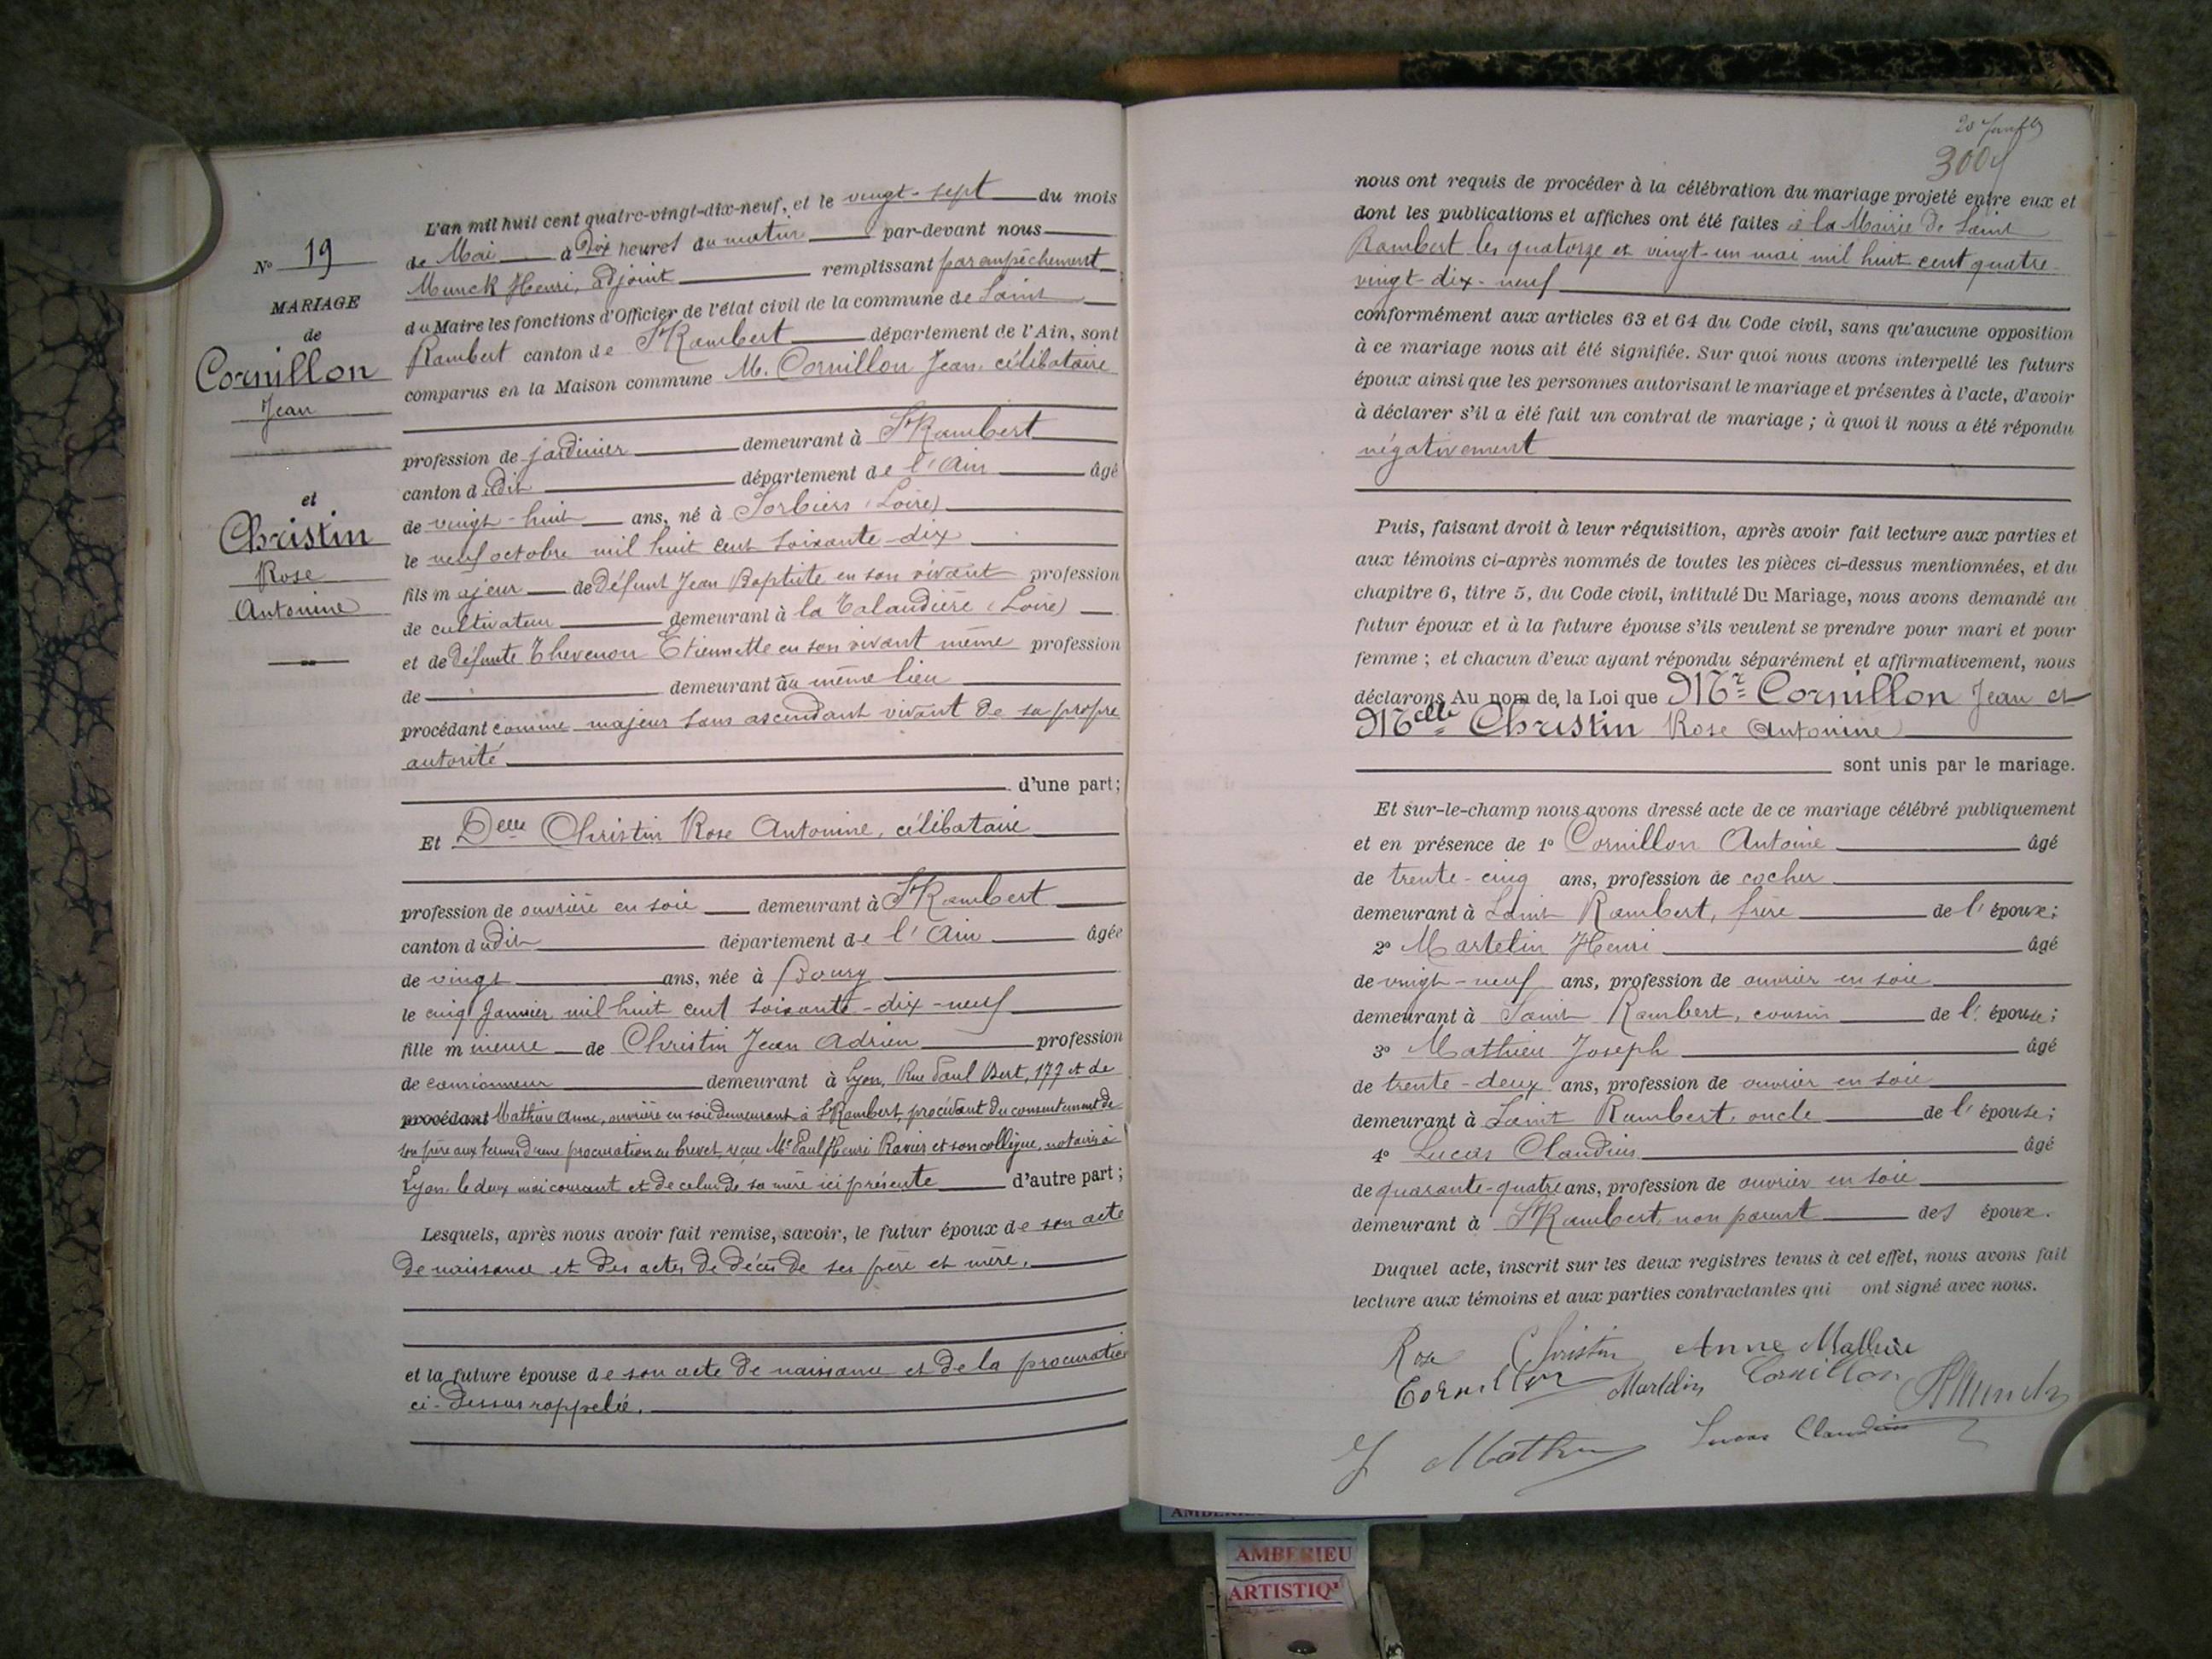 N° 19
MARIAGE
de
Cornillon
Jean
et
Christin
Rose
Antonine
L'an mil huit cent quatre-vingt-dix-neuf, et le vingt-sept du mois
de Mai à Dix heures du matin par-devant nous
Munck Henri, adjoint remplissant par empêchement
du Maire les fonctions d'Officier de l'état civil de la commune de Saint
Rambert canton de St Rambert département de l'Ain, sont
comparus en la Maison commune M. Cornillon Jean, célibataire
profession de jardinier demeurant à St Rambert
canton dudit département de l'Ain âgé
de vingt-huit ans, né à Sorbiers (Loire)
le neuf octobre mil huit cent soixante-dix
fils majeur de défunt Jean Baptiste en son vivant profession
de cultivateur demeurant à la Talaudière (Loire)
et de défunte Thevenon Etiennette en son vivant même profession
de demeurant au même lieu
procédant comme majeur sans ascendant vivant de sa propre
autorité
d'une part;
Et Delle Christin Rose Antonine, célibataire
profession de ouvrière en soie demeurant à St Rambert
canton dudit département de l'Ain âgée
de vingt ans, née à Bourg
le cinq Janvier mil huit cent soixante-dix-neuf
fille mineure de Christin Jean Adrien profession
de camionneur demeurant à Lyon, Rue Paul Bert, 177 et de
procédant Mathieu Anne, ouvrière en soie demeurant à St Rambert, procédant du consentement de
son père aux termes d'une procuration en brevet, reçue Me Paul Henri Ravier et son collègue, notaires à
Lyon le deux mai courant et de celui de sa mère ici présente d'autre part;
Lesquels, après nous avoir fait remise, savoir, le futur époux de son acte
de naissance et des actes de décès de ses père et mère.
et la future épouse de son acte de naissance et de la procuration
ci-dessus rappelée.
300
nous ont requis de procéder à la célébration du mariage projeté entre eux et
dont les publications et affiches ont été faites à la Mairie de Saint
Rambert les quatorze et vingt-un mai mil huit cent quatre-
vingt-dix-neuf
conformément aux articles 63 et 64 du Code civil, sans qu'aucune opposition
à ce mariage nous ait été signifiée. Sur quoi nous avons interpellé les futurs
époux ainsi que les personnes autorisant le mariage et présentes à l'acte, d'avoir
à déclarer s'il a été fait un contrat de mariage; à quoi il nous a été répondu
négativement
Puis, faisant droit à leur réquisition, après avoir fait lecture aux parties et
aux témoins ci-après nommés de toutes les pièces ci-dessus mentionnées, et du
chapitre 6, titre 5, du Code civil, intitulé Du Mariage, nous avons demandé au
futur époux et à la future épouse s'ils veulent se prendre pour mari et pour
femme; et chacun d'eux ayant répondu séparément et affirmativement, nous
déclarons Au nom de la Loi que Mr Cornillon Jean et
Melle Christin Rose Antonine
sont unis par le mariage.
Et sur-le-champ nous avons dressé acte de ce mariage célébré publiquement
et en présence de 1° Cornillon Antoine âgé
de trente-cinq ans, profession de cocher
demeurant à Saint Rambert, frère de l'époux;
2° Martelin Henri âgé
de vingt-neuf ans, profession de ouvrier en soie
demeurant à Saint Rambert, cousin de l'épouse;
3° Mathieu Joseph âgé
de trente-deux ans, profession de ouvrier en soie
demeurant à Saint Rambert, oncle de l'épouse;
4° Lucas Claudius âgé
de quarante-quatre ans, profession de ouvrier en soie
demeurant à St Rambert, non parent des époux.
Duquel acte, inscrit sur les deux registres tenus à cet effet, nous avons fait
lecture aux témoins et aux parties contractantes qui ont signé avec nous.
Rose Christin Anne Mathieu
Cornillon Martelin Cornillon HMunck
J Mathieu Lucas Claudius
AMBERIEU
ARTISTIQ